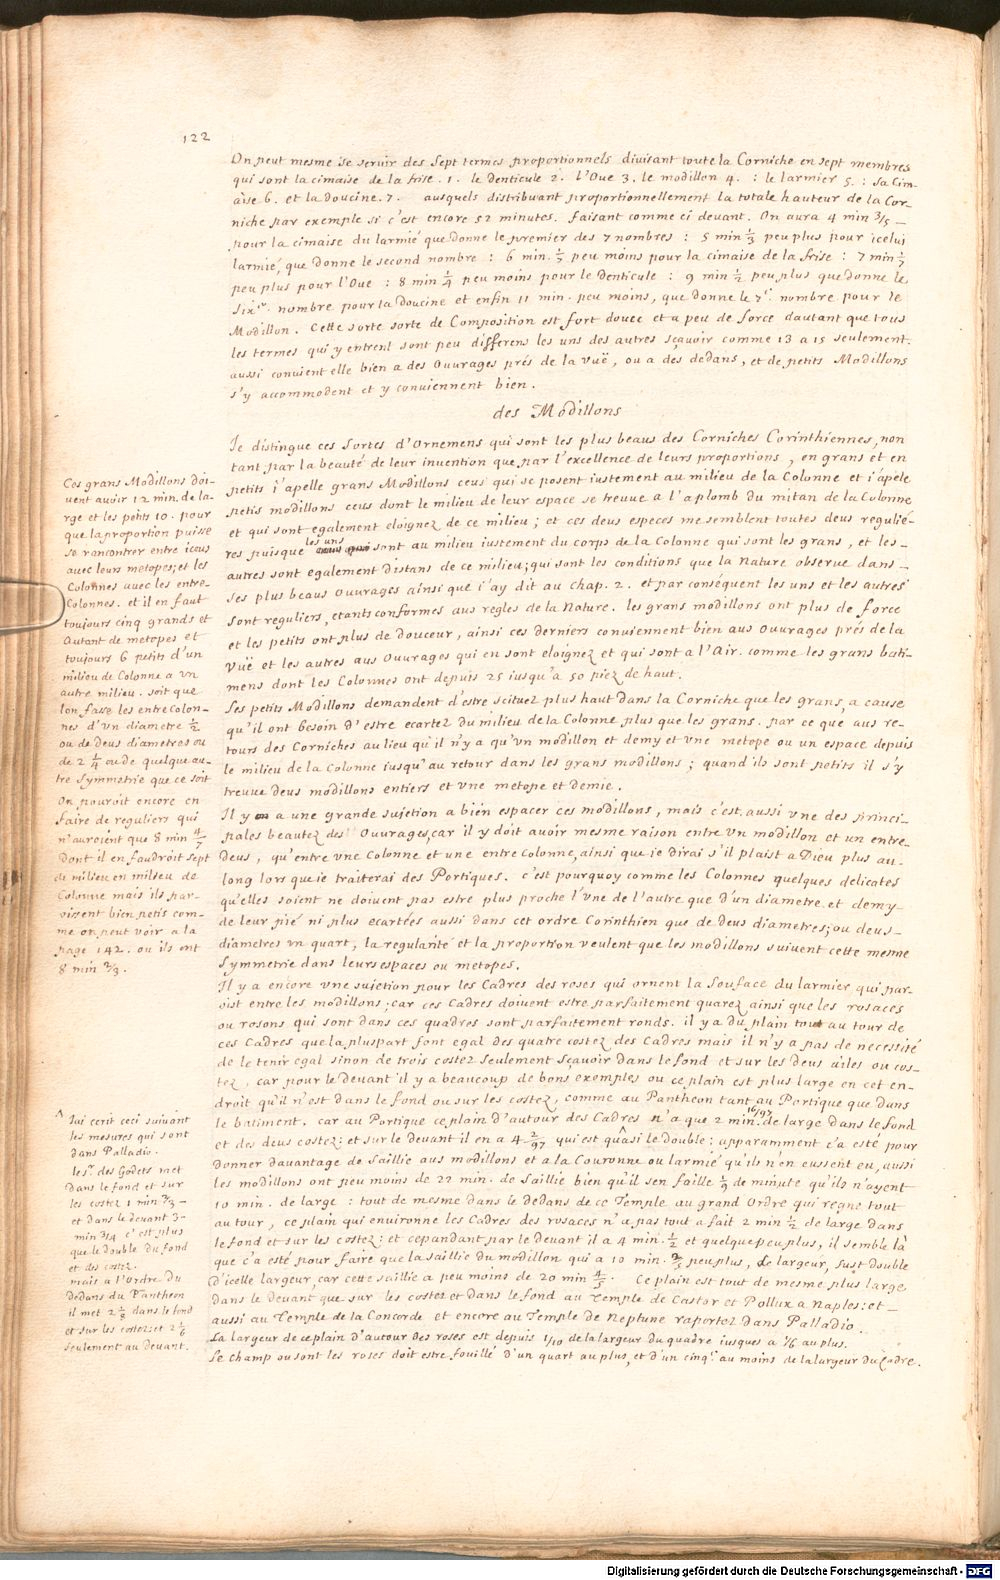 122
On peut mesme se servir des Sept termes proportionnels divisant toute la Corniche en sept membres
qui sont la cimaise de la frise . 1 . le denticule 2 . l'Ove 3 . le modillon 4 . : le larmier 5 . : sa Cim-
aise 6 . et la doucine . 7 . ausquels distribuant proportionnellement la totale hauteur de la Cor-
niche par exemple si c'est encore 52 minutes . faisant comme ci devant . On aura 4 min 3/5 -
pour la cimaise du larmié que donne le premier des 7 nombres : 5 min 1/3 peu plus pour icelui
larmié, que donne le second nombre : 6 min . 1/7 peu moins pour la cimaise de la frise : 7 min 1/7
peu plus pour l'Ove : 8 min 1/4 peu moins pour le Denticule : 9 min 1/2 peu plus que donne le
Six.e nombre pour la doucine et enfin 11 min . peu moins, que donne le 7.e nombre pour le
Modillon . Cette sorte sorte de Composition est fort douce et a peu de force dautant que tous
les termes qui y entrent sont peu differens les uns des autres sçavoir comme 13 a 15 seulement.
aussi convient elle bien a des Ouvrages prés de la vuë, ou a des dedans, et de petits Modillons
s'y accommodent et y conviennent bien .
des Modillons
Je distingue ces Sortes d'Ornemens qui sont les plus beaus des Corniches Corinthiennes, non
tant par la beauté de leur invention que par l'excellence de leurs proportions , en grans et en
petits j'apelle grans Modillons ceus qui se posent justement au milieu de la Colonne et j'apèle
petis modillons ceus dont le milieu de leur espace se treuve a l'aplomb du mitan de la Colonne
et qui sont egalement eloignez de ce milieu ; et ces deus especes me semblent toutes deus regulié-
res puisque les uns sont au milieu justement du corps de la Colonne qui sont les grans , et les -
autres sont egalement distans de ce milieu ; qui sont les conditions que la Nature observe dans -
Ses plus beaus Ouvrages ainsi que j'ay dit au chap . 2 . et par conséquent les uns et les autres
sont reguliers, etants conformes aus regles de la Nature . les grans modillons ont plus de force
et les petits ont plus de douceur, ainsi ces derniers conviennent bien aus Ouvrages prés de la
vuë et les autres aus Ouvrages qui en sont eloignez et qui sont a l'Air . comme les grans bati-
mens dont les Colonnes ont depuis 25 jusqu'à 50 piez de haut .
Ses petits Modillons demandent d'estre scituez plus haut dans la Corniche que les grans, a cause
qu'il ont besoin d'estre ecartez du milieu de la Colonne plus que les grans . par ce que aus re-
tours des Corniches au lieu qu'il n'y a qu'un modillon et demy et une metope ou un espace depuis
le milieu de la Colonne jusqu'au retour dans les grans modillons ; quand ils sont petits il s'y
treuve deus modillons entiers et une metope et demie .
Il y a une grande sujetion a bien espacer ces modillons , mais c'est aussi une des princi-
pales beautez des Ouvrages, car il y doit avoir mesme raison entre un modillon et un entre-
deus , qu'entre une Colonne et une entre Colonne, ainsi que je dirai s'il plaist a Dieu plus au-
long lors que je traiterai des Portiques . c'est pourquoy comme les Colonnes quelques delicates
qu'elles soient ne doivent pas estre plus proche l'une de l'autre que d'un diametre et demy-
de leur pié ni plus ecartées aussi dans cet ordre Corinthien que de deus diametres ; ou deus -
diametres un quart , la regularité et la proportion veulent que les modillons suivent cette mesme
Symmetrie dans leurs espaces ou metopes .
Il y a encore une sujetion pour les Cadres des roses qui ornent la souface du larmier qui par-
oist entre les modillons ; car ces Cadres doivent estre parfaitement quarez ainsi que les rosaces
ou rosons qui sont dans ces quadres sont parfaitement ronds . il y a du plain tout au tour de
ces Cadres que la pluspart font egal des quatre costez des Cadres mais il n'y a pas de necessité
de le tenir egal sinon de trois costez seulement sçavoir dans le fond et sur les deus ailes ou cos-
tez , car pour le devant il y a beaucoup de bons exemples ou ce plain est plus large en cet en-
droit qu'il n'est dans le fond ou sur les costez , comme au Pantheon tant au Portique que dans
le batiment . car au Portique ce plain d'autour des Cadres n'a que 2 min . 16/97 de large dans le fond
et des deus costez : et sur le devant il en a 4 2/97 qui est quasi le double : apparamment ç'a esté pour ^
donner davantage de Saillie aus modillons et a la Couronne ou larmié qu'ils n'en eussent eu, aussi
les modillons ont peu moins de 22 min . de Saillie bien qu'il s'en faille 1/9 de minute qu'ils n'ayent
10 min . de large : tout de mesme dans le dedans de ce Temple au grand Ordre qui regne tout
autour , ce plain qui environne les Cadres des rosaces n'a pas tout a fait 2 min 1/2 de large dans
le fond et sur les costez : et cependant par le devant il a 4 min . 1/2 et quelque peu plus, il semble là
que ç'a esté pour faire que la saillie du modillon qui a 10 min . 2/5 peu plus , de largeur , fust double
d'icelle largeur, car cette saillie a peu moins de 20 min 4/5 . Ce plain est tout de mesme plus large
dans le devant que sur les costez et dans le fond au Temple de Castor et Pollux a Naples : et -
aussi au Temple de la Concorde et encore au Temple de Neptune raportez dans Palladio .
La largeur de ce plain d'autour des roses est depuis 1/10 de la largeur du quadre jusques a 1/6 au plus .
Le champ ou sont les roses doit estre fouillé d'un quart au plus, et d'un cinq.e au moins de la largeur du Cadre .
Ces grans Modillons doi-
vent avoir 12 min . de la-
rge et les petits 10 . pour
que la proportion puisse
se rancontrer entre iceus
avec leurs metopes ; et les
Colonnes avec les entre-
Colonnes . et il en faut
toujours cinq grands et
Autant de metopes et
toujours 6 petits d'un
milieu de Colonne a un
autre milieu . soit que
lon fasse les entrecolon-
nes d'un diametre 1/2
ou de deus diametres ou
de 2 1/4 ou de quelque au-
tre Symmetrie que ce soit
On pouroit encore en
faire de reguliers qui
n'auroient que 8 min 4/7
dont il en faudroit sept
de milieu en milieu de
Colonne mais ils par-
oissent bien petis com-
me on peut voir a la
page 142 . ou ils ont
8 min 2/3 .
^ J'ai ecrit ceci suivant
les mesures qui sont
dans Palladio .
le s.r des Godets met
dans le fond et sur
les costez 1 min 2/3 -
et dans le devant 3 -
min 3/4 c'est plus
que le double du fond
et des costez .
mais a l'Ordre du
dedans du Pantheon
il met 2 1/8 dans le fond
et sur les costez : et 2 1/6
seulement au devant .
Digitalisierung gefördert durch die Deutsche Forschungsgemeinschaft - DFG